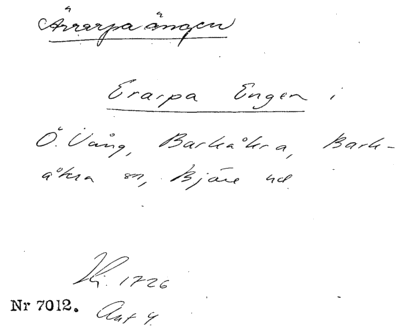 Ärrarpaängen
Erarpa Engen i
Ö. Vång, Barkåkra, Bark-
åkra sn, Bjäre hd
1726
Nr 7012. Akt 4.